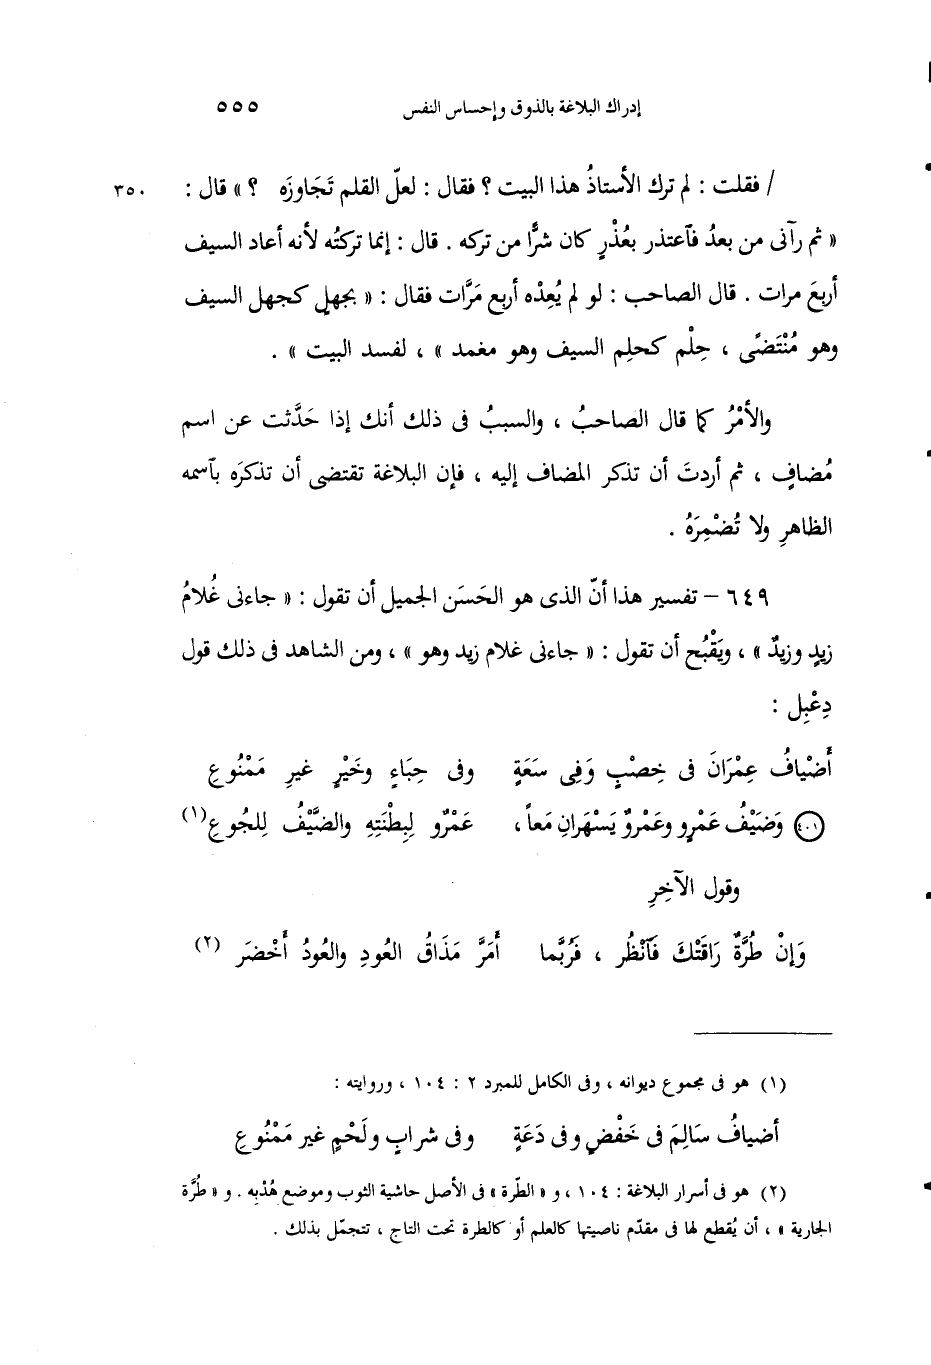 إدراك البلاغة بالذوق وإحساس النفس ٥٥٥
/ فقلت : لم ترك الأستاذُ هذا البيت ؟ فقال : لعلّ القلم تَجَاوزَه ؟ » قال : ٣٥٠
« ثم رآنى من بعدُ فٱعتذر بعُذْرٍ كان شرًّا من تركه . قال : إنما تركتُه لأنه أعاد السيف
أربعَ مرات . قال الصاحب : لو لم يُعِدْه أربع مَرَّات فقال : « بجهلٍ كجهل السيف
وهو مُنْتَضًى ، حِلْم كحلِم السيف وهو مغمد » ، لفسد البيت » .
والأمْرُ كما قال الصاحبُ ، والسببُ فى ذلك أنك إذا حَدَّثت عن اسم
مُضافٍ ، ثم أردتَ أن تذكر المضاف إليه ، فإن البلاغة تقتضى أن تذكرَه بٱسمه
الظاهرِ ولا تُضْمِرَهُ .
٦٤٩ – تفسير هذا أنّ الذى هو الحَسَن الجميل أن تقول : « جاءنى غُلامُ
زيدٍ وزيدٌ » ، ويَقْبُح أن تقول : « جاءنى غلام زيد وهو » ، ومن الشاهد فى ذلك قول
دِعْبِل :
أَضْيافُ عِمْرَانَ فى خِصْبٍ وَفِى سَعَةٍ وفى حِبَاءٍ وخَيْرٍ غيرِ مَمْنُوعِ
٤٠١ وَضَيْفُ عَمْرٍو وعَمْرٌو يَسْهَرانِ مَعاً ، عَمْرٌو لِبِطْنَتِهِ والضَّيْفُ لِلجُوعِ (١)
وقول الآخِرِ
وَإنْ طُرَّةٌ رَاقَتْكَ فَٱنْظُر ، فَرُبَّما أَمَرَّ مَذَاقُ العُودِ والعُودُ أَخْضرَ (٢)
(١) هو فى مجموع ديوانه ، وفى الكامل للمبرد ٢ : ١٠٤ ، وروايته :
أضيافُ سَالِمَ فى خَفْضٍ وفى دَعَةٍ وفى شرابٍ ولَحْمٍ غير مَمْنُوعِ
(٢) هو فى أسرار البلاغة : ١٠٤ ، و « الطّرة » فى الأصل حاشية الثوب وموضع هُدْبِه . و « طُرَّة
الجارية » ، أن يُقطع لها فى مقدّم ناصيتها كالعلم أو كالطرة تحت التاج ، تتجمّل بذلك .